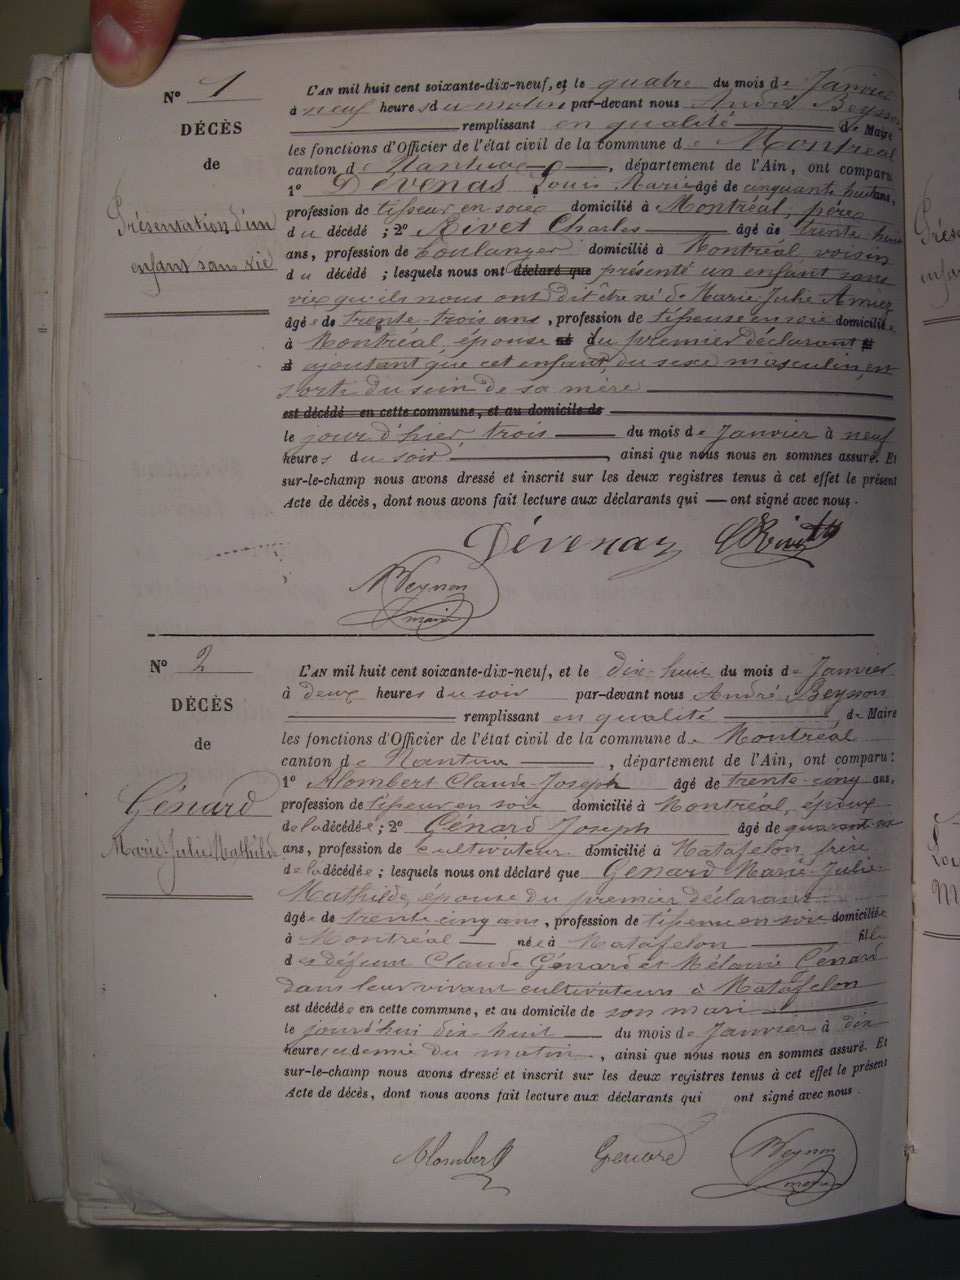 No 1
DÉCÈS
de
Présentation d'un
enfant sans vie
L'AN mil huit cent soixante-dix-neuf, et le quatre du mois de Janvier
à neuf heures du matin par-devant nous André Beynon
remplissant en qualité de Maire
les fonctions d'Officier de l'état civil de la commune de Montréal
canton de Nantua, département de l'Ain, ont comparu
1o DÉVENAS Louis Marie âgé de cinquante huit ans,
profession de tisseur en soie domicilié à Montréal, père
du décédé ; 2o Rivet Charles âgé de trente-huit
ans, profession de boulanger domicilié à Montréal voisin
du décédé ; lesquels nous ont déclaré que présenté un enfant sans
vie qu'ils nous ont dit être né de Marie Julie
âgée de trente-trois ans, profession de tisseuse en soie domiciliée
à Montréal, épouse du premier déclarant
ajoutant que cet enfant, du sexe masculin, est
sorti du sein de sa mère
est décédé en cette commune, et au domicile de
le jour d'hier, trois du mois de Janvier à neuf
heures du soir, ainsi que nous nous en sommes assuré. Et
sur-le-champ nous avons dressé et inscrit sur les deux registres tenus à cet effet le présent
Acte de décès, dont nous avons fait lecture aux déclarants qui — ont signé avec nous.
Dévenas Rivet
Beynon
maire
No 2
DÉCÈS
de
Génard
Marie-Julie Mathilde
L'AN mil huit cent soixante-dix-neuf, et le dix-huit du mois de Janvier
à deux heures du soir par-devant nous André Beynon
remplissant en qualité de Maire
les fonctions d'Officier de l'état civil de la commune de Montréal
canton de Nantua, département de l'Ain, ont comparu :
1o Alombert Claude Joseph âgé de trente-cinq ans,
profession de tisseur en soie domicilié à Montréal, époux
de la décédée ; 2o Génard Joseph âgé de
ans, profession de cultivateur domicilié à Matafelon, frère
de la décédée ; lesquels nous ont déclaré que Génard Marie-Julie
Mathilde, épouse du premier déclarant
âgée de trente cinq ans, profession de tisseuse en soie domiciliée
à Montréal — née à Matafelon fille
des défunts Claude Génard et Mélanie Génard
dans leur vivant cultivateurs à Matafelon
est décédée en cette commune, et au domicile de son mari
le jourd'hui dix-huit du mois de Janvier à dix
heures et demie du matin, ainsi que nous nous en sommes assuré. Et
sur-le-champ nous avons dressé et inscrit sur les deux registres tenus à cet effet le présent
Acte de décès, dont nous avons fait lecture aux déclarants qui ont signé avec nous.
Alombert Genard Beynon
maire